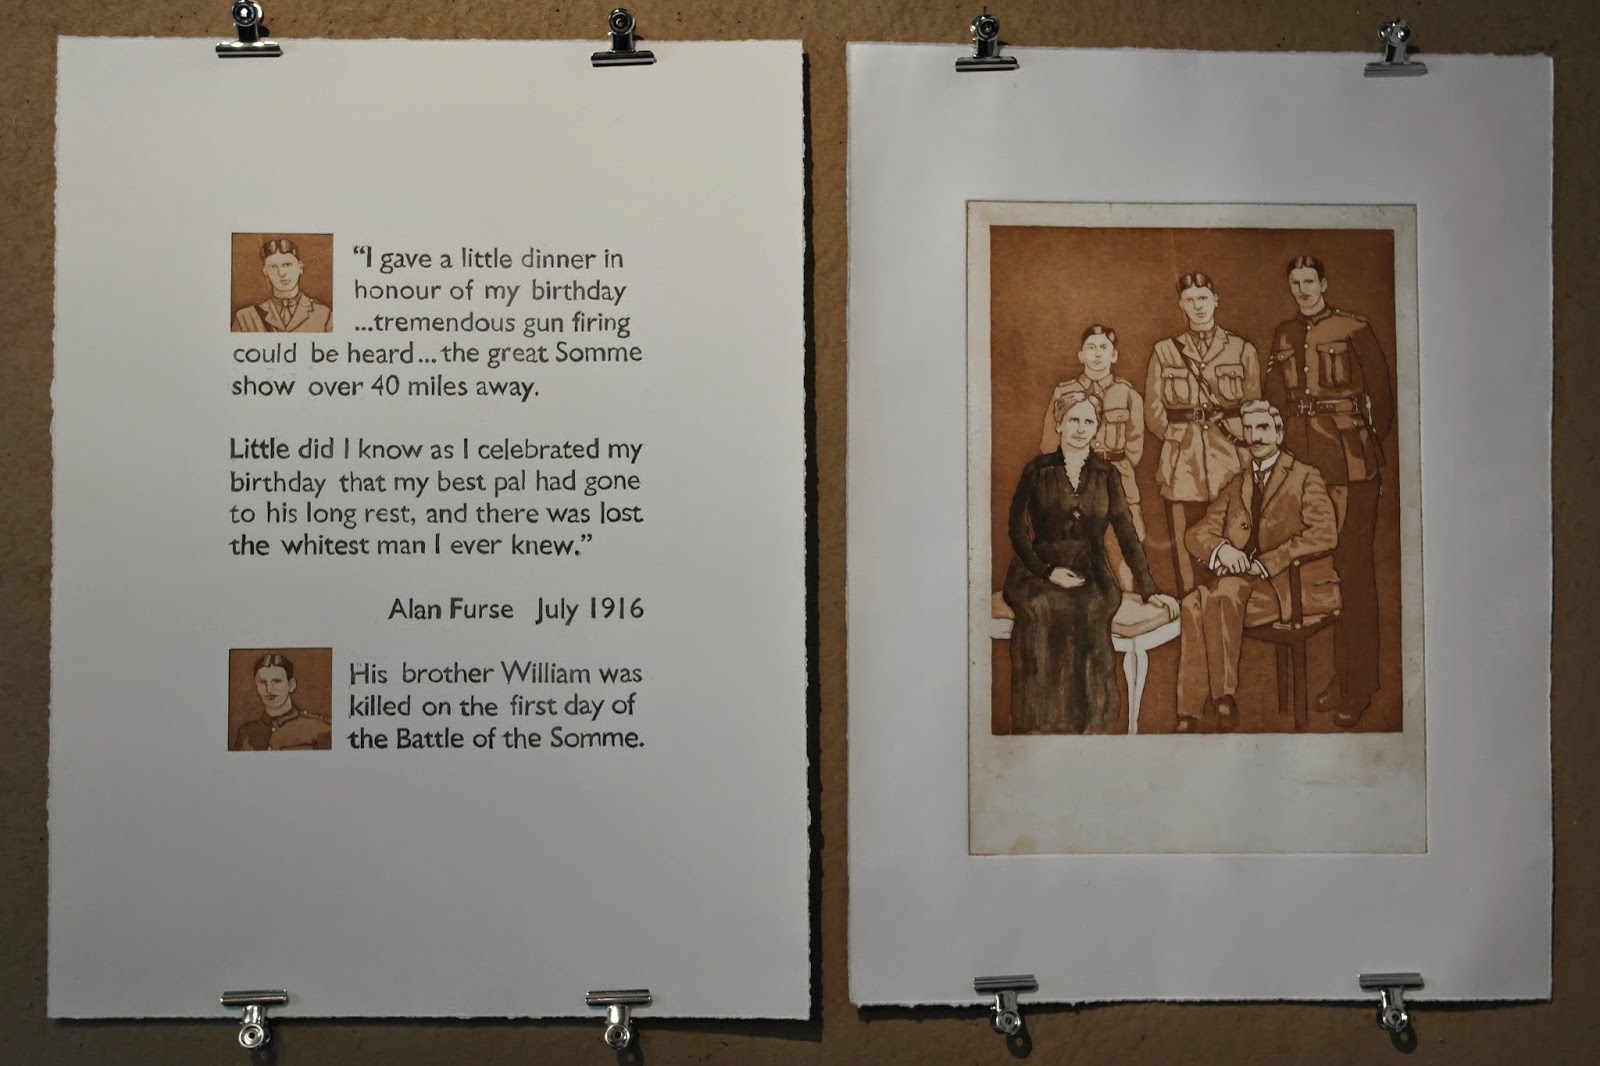 “I gave a little dinner in
honour of my birthday
...tremendous gun firing
could be heard... the great Somme
show over 40 miles away.
Little did I know as I celebrated my
birthday that my best pal had gone
to his long rest, and there was lost
the whitest man I ever knew.”
Alan Furse July 1916
His brother William was
killed on the first day of
the Battle of the Somme.